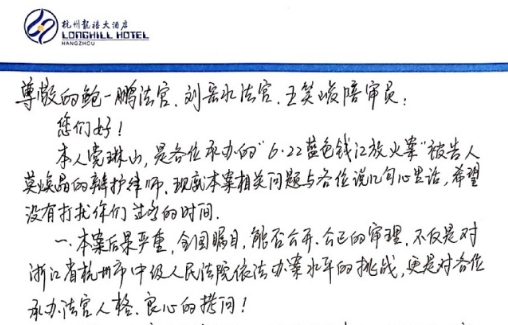 杭州龍禧大酒店
LONGHILL HOTEL
HANGZHOU
尊敬的鲍一鹏法官、刘岳水法官、王笑峻陪审员:
您们好!
本人党琳山,是各位承办的"6·22蓝色钱江放火案"被告人
莫焕晶的辩护律师,现就本案相关问题与各位说几句心里话,希望
没有打扰你们宝贵的时间。
一、本案后果严重,全国瞩目,能否公开、公正的审理,不仅是对
浙江省杭州市中级人民法院依法办案水平的挑战,更是对各位
承办法官人格、良心的拷问!